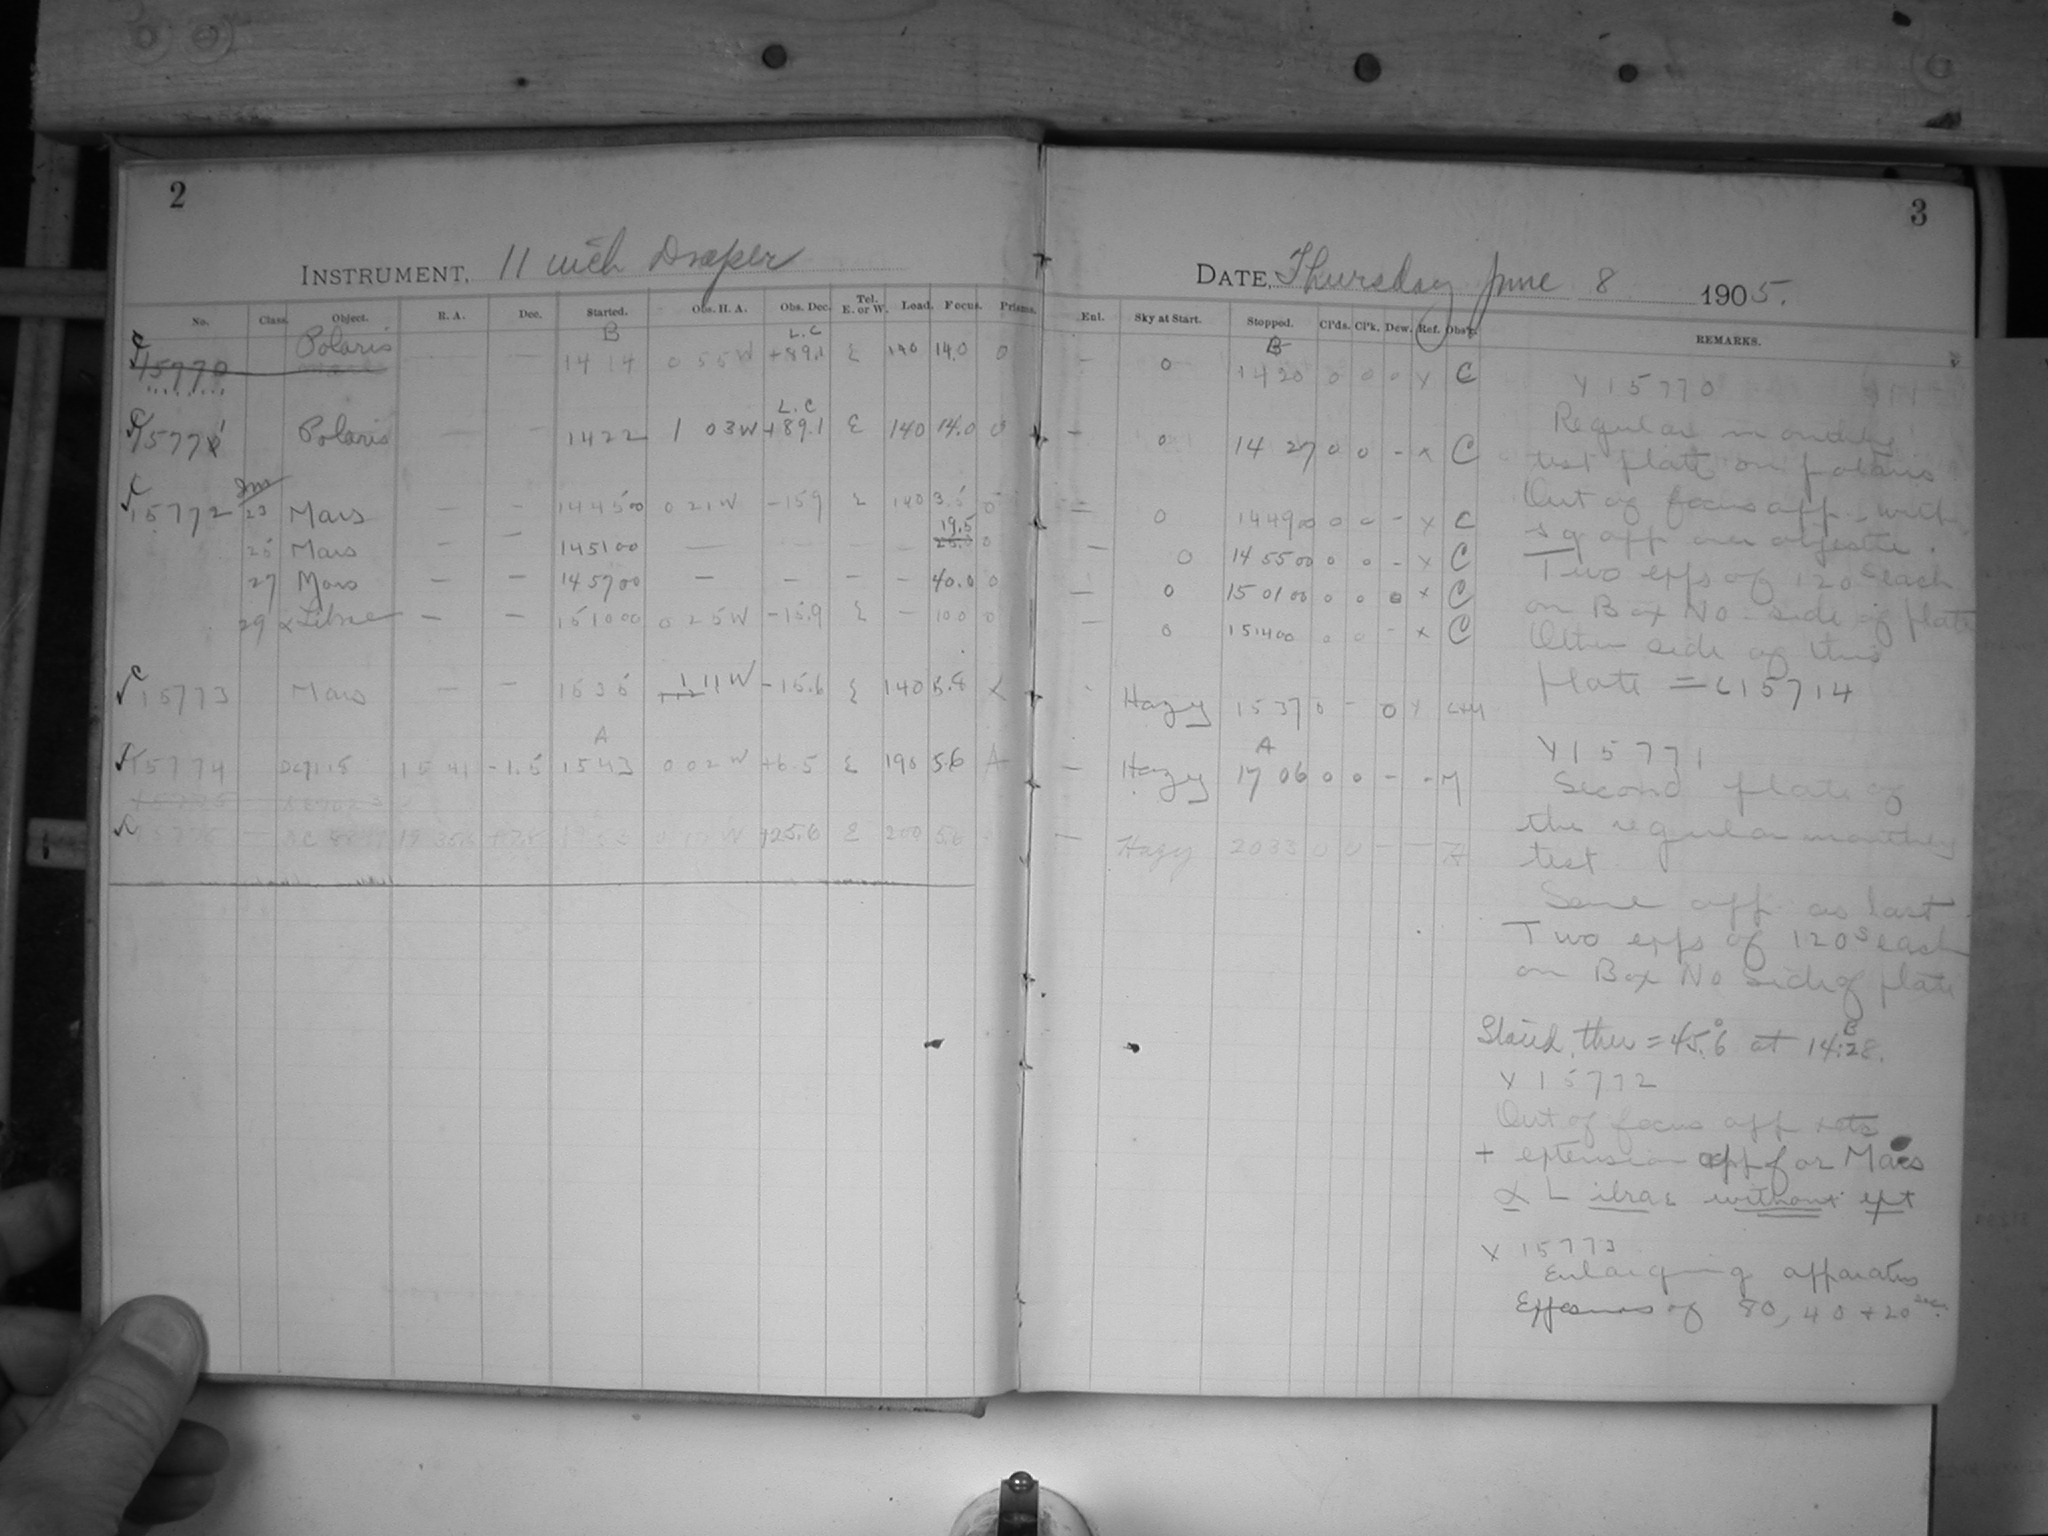 2
INSTRUMENT, 11 inch Draper
No. Class. Object. R. A. Dec. Started. Obs. H. A. Obs. Dec. Tel. E. or W. Load. Focus. Prisms.
15770 Polaris — — B 14 14 0 55 W L.C +89.1 E 140 14.0 0
15771 Polaris — — 14 22 1 03 W L.C +89.1 E 140 14.0 0
15772 23 Mars — — 144500 0 21 W -15.9 E 140 3.5 0
25 Mars — — 145100 — — — — 19.5 0
27 Mars — — 145700 — — — — 40.0 0
29 α Librae — — 151000 0 25 W -15.9 E — 10.0 0
15773 Mars — — 1535 1 11 W -15.6 E 140 5.8
15774 15 41 -1.5 A 1543 0 02 W +6.5 E 190 5.6 A
W +25.6 E 200 5.6
3
DATE, Thursday June 8 1905.
Enl. Sky at Start. Stopped. Cl'ds. Cl'k. Dew. Ref. Obs'r. REMARKS.
— 0 B 1420 0 0 0 x C
— 0 14 27 0 0 - x C
— 0 144900 0 0 - x C
— 0 14 5500 0 0 - x C
— 0 150100 0 0 0 x C
— 0 151400 0 0 - x C
Hazy 1537 0 - 0 x C+M
— Hazy A 17 06 0 0 - - M
— Hazy 2033 0 0 - -
X 15770
Regular monthly
test plate on polaris
Out of focus app. with
sq app over objective.
Two exps of 120s each
on Box No. side of plate
Other side of this
plate = C15714
X 15771
Second plate of
the regular monthly
test
Same app as last
Two exps of 120s each
on Box No side of plate
Stand. ther = 45.°6 at 14:28. B
X 15772
Out of focus app
+ extension app for Mars
α Librae without ext
X 15773
Enlarging apparatus
Exposures of 80, 40 + 20 sec.